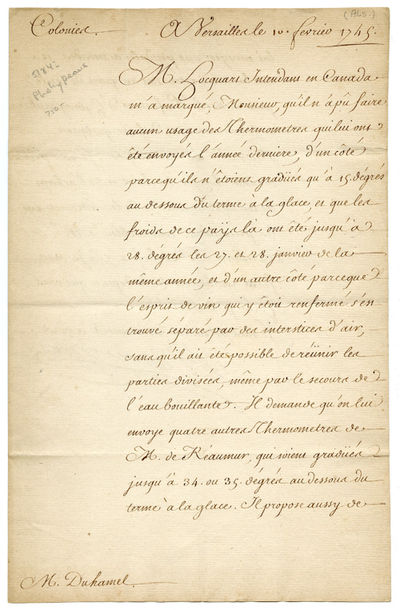 (ALS.)
Colonies. A Versailles le 10. fevrier 1745.
Phelypeaux
M. Hocquart Intendant en Canada
m'a marqué, Monsieur, qu'il n'a pû faire
aucun usage des Thermometres qui lui ont
été envoyés l'année derniere, d'un côté
parcequ'ils n'étoient gradüés qu'à 15. dégrés
au dessous du terme à la glace, et que les
froids de ce païs là ont été jusqu'à
28. dégrés les 27. et 28. janvier de la
même année, et d'un autre côté parceque
l'esprit de vin qui y étoit renfermé s'en
trouvé séparé par des interstices d'air,
sans qu'il ait été possible de réünir les
parties divisées, même par le secours de
l'eau bouillante. Il demande qu'on lui
envoye quatre autres Thermometres de
M. de Réaumur, qui soient gradüés
jusqu'à 34. ou 35. dégrés au dessous du
terme à la glace. Il propose aussy de
M. Duhamel.